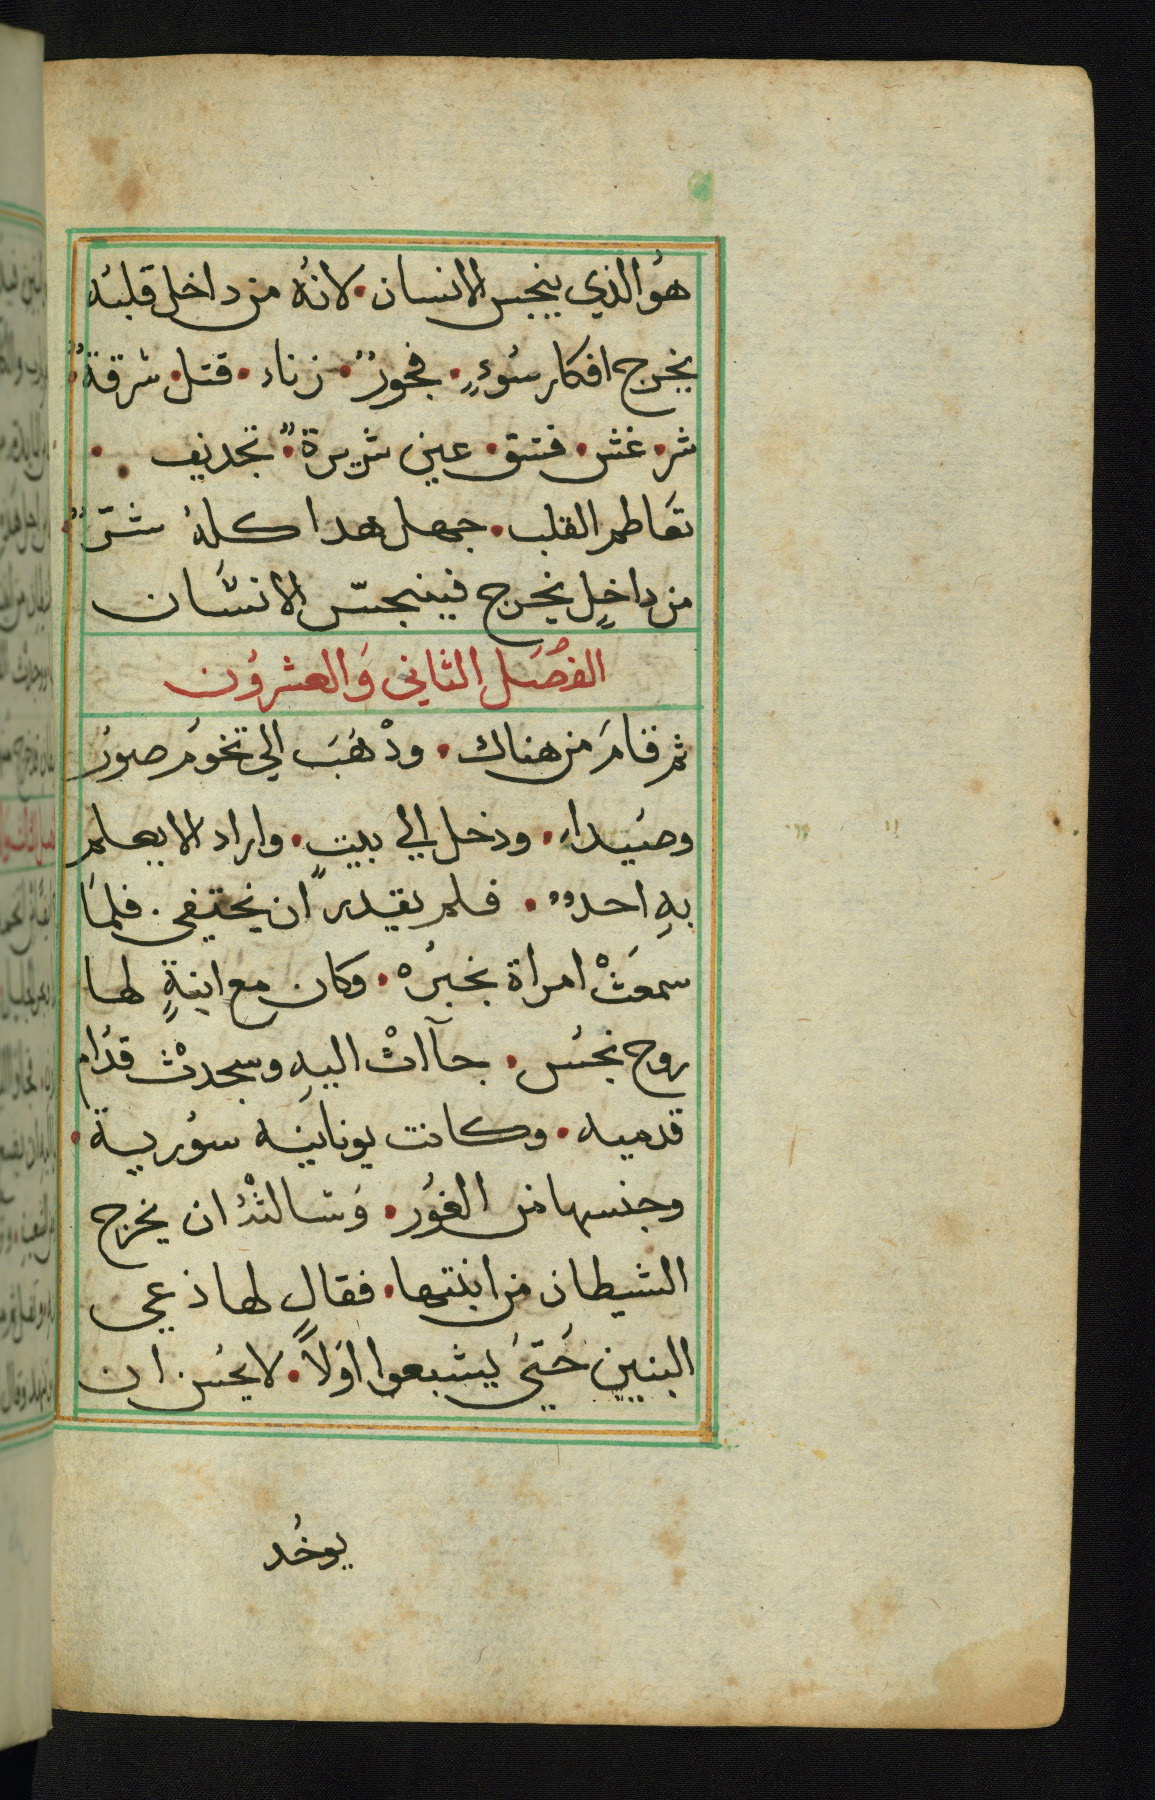 هُو الذي ينجس الانسان • لانهُ من داخل قلبُه
يخرج افكار سُوءٍ • فجورٌ • زناء • قتل • شرقةٌ
شر • غش • فسق • عين شريرة • تجديف •
تعَاطم القلب • جهل هدا كلهُ شرٌّ
من داخلٍ يخرج فينجسّ الانسَان
الفصُل الثاني وَالعشرُون
ثم قامَ من هناك • ودْهَبَ الي تخوُم صورُ
وصَيداء • ودخل الي بيتٍ • واراد الا يعلم
بهِ احدٌ • فلم يقدر ان يختفي • فلمَا
سمعَتْ امراة بخبرُهْ • وكان مع ابنةٍ لها
روح نجسُ • جآات اليهِ وسجدتْ قدُام
قدميه • وكانت يونانيَه سوُرية •
وجنسها من الغوُر • وَسالتْهُ ان يخرج
الشيطان من ابنتها • فقال لها ذعي
البنيين حَتيَ يشبعوا اوَلاً • لا يحسُن ان
يوخُد